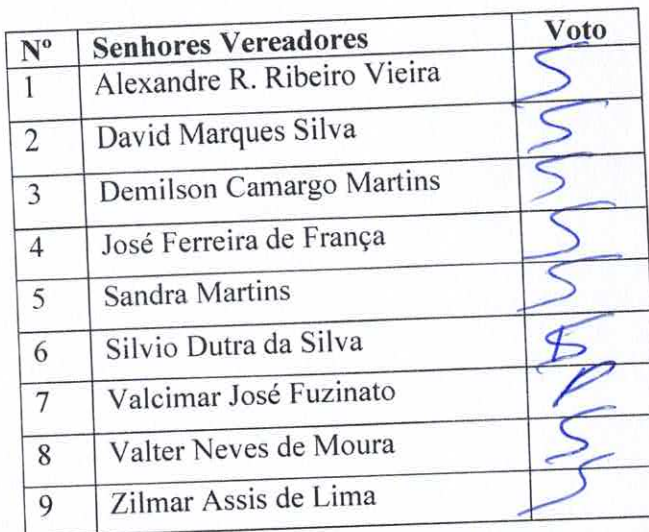 Nº Senhores Vereadores Voto
1 Alexandre R. Ribeiro Vieira S
2 David Marques Silva S
3 Demilson Camargo Martins S
4 José Ferreira de França S
5 Sandra Martins S
6 Silvio Dutra da Silva S
7 Valcimar José Fuzinato P
8 Valter Neves de Moura S
9 Zilmar Assis de Lima S